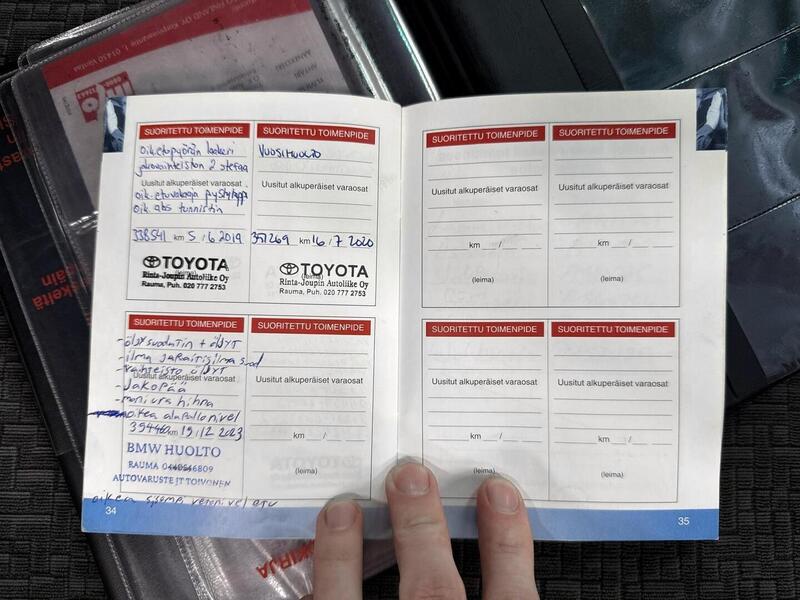 1, 01450 Vantaa
info
SUORITETTU TOIMENPIDE
oik etupyörän laakeri
jakovaihteiston 2 stefaa
Uusitut alkuperäiset varaosat
oik. abs tunnistin
338541 km 5 / 6 2019
TOYOTA
(leima)
Rinta-Joupin Autoliike Oy
Rauma, Puh. 020 777 2753
SUORITETTU TOIMENPIDE
VUOSIHUOLTO
Uusitut alkuperäiset varaosat
357269 km 16 / 7 2020
TOYOTA
(leima)
Rinta-Joupin Autoliike Oy
Rauma, Puh. 020 777 2753
SUORITETTU TOIMENPIDE
-öljysuodatin + öljyt
-ilma ja raitisilma suod
-vaihteisto öljyt
Uusitut alkuperäiset varaosat
-Jakopää
-moniura hihna
-oikea alapallonivel
394460 km 19 / 12 2023
BMW HUOLTO
RAUMA 0440546809
AUTOVARUSTE JT TOIVONEN
oikea sisempi vetonivel etu
SUORITETTU TOIMENPIDE
Uusitut alkuperäiset varaosat
km /
(leima)
34
SUORITETTU TOIMENPIDE
Uusitut alkuperäiset varaosat
km /
(leima)
SUORITETTU TOIMENPIDE
Uusitut alkuperäiset varaosat
km /
(leima)
SUORITETTU TOIMENPIDE
Uusitut alkuperäiset varaosat
km /
(leima)
SUORITETTU TOIMENPIDE
Uusitut alkuperäiset varaosat
km /
(leima)
35